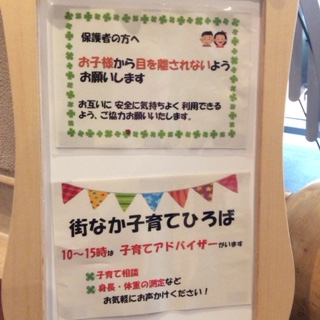 保護者の方へ
お子様から目を離されないよう
お願いします
お互いに 安全に気持ちよく 利用できる
よう、ご協力お願いいたします。
街なか子育てひろば
10～15時は 子育てアドバイザーがいます
子育て相談
身長・体重の測定など
お気軽にお声かけください！